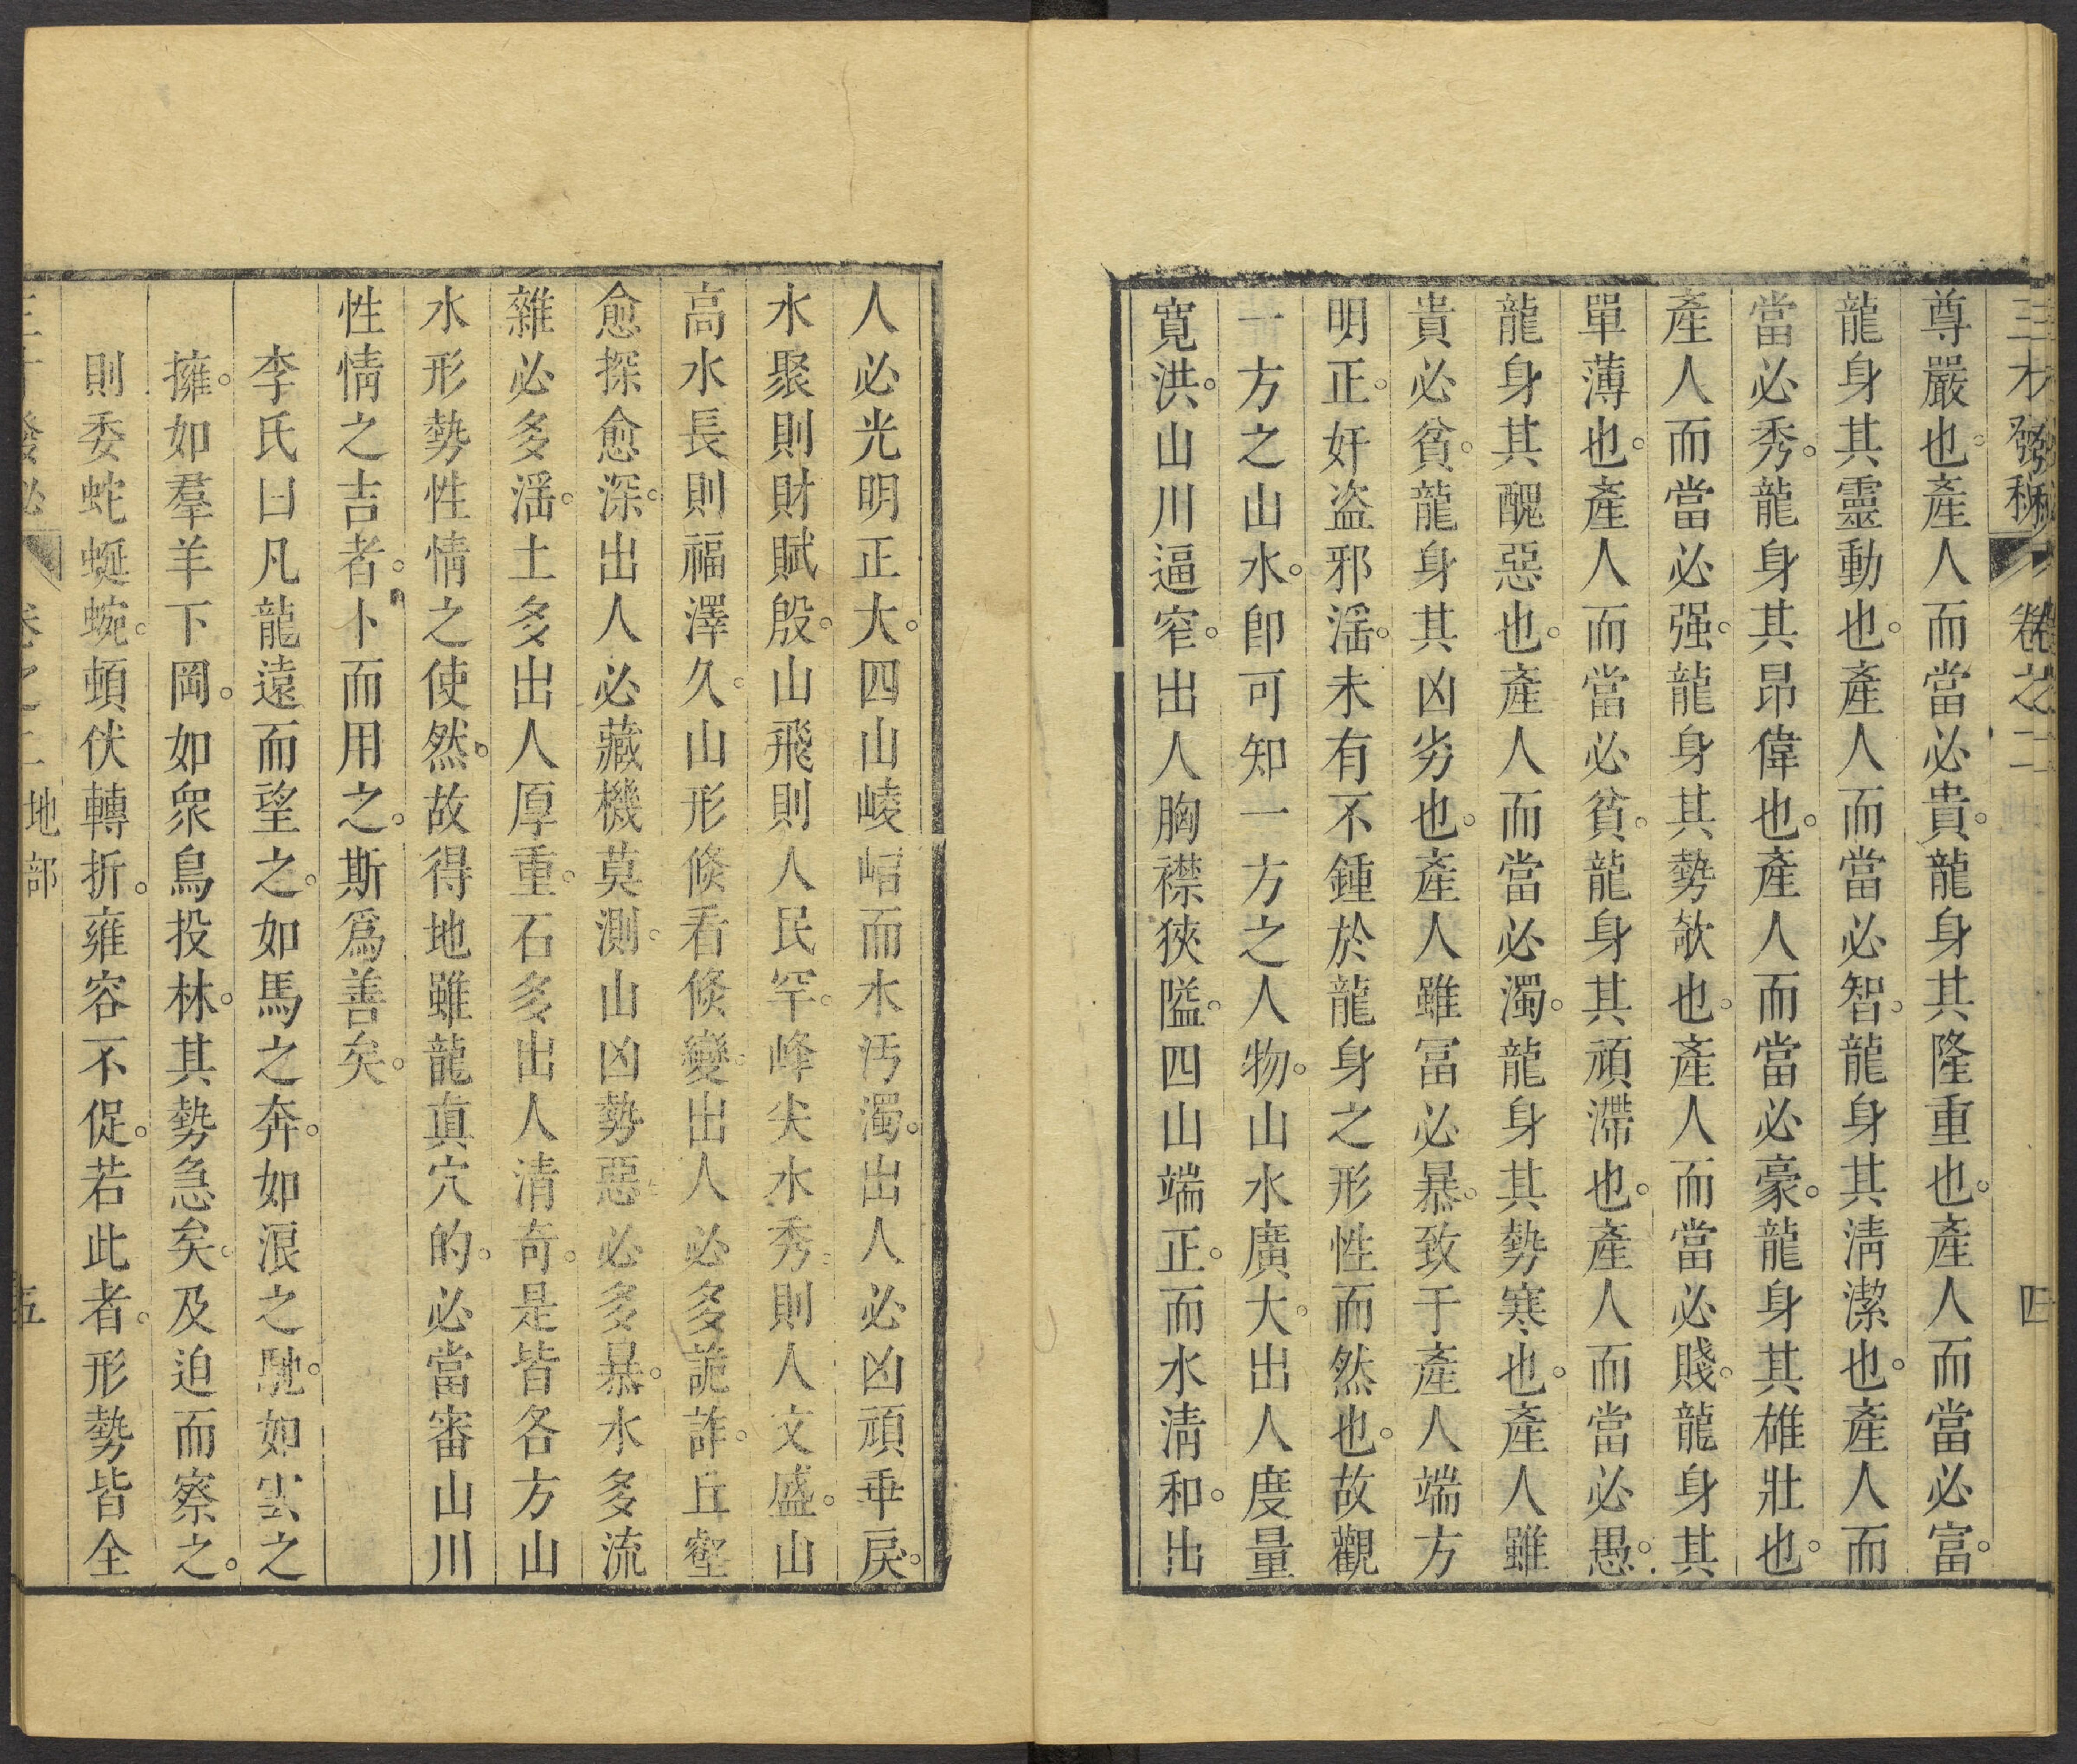 三才發秘 卷之二 四
尊嚴也產人而當必貴龍身其隆重也產人而當必富
龍身其靈動也產人而當必智龍身其清潔也產人而
當必秀龍身其昂偉也產人而當必豪龍身其雄壯也
產人而當必强龍身其勢欹也產人而當必賤龍身其
單薄也產人而當必貧龍身其頑滯也產人而當必愚
龍身其醜惡也產人而當必濁龍身其勢寒也產人雖
貴必貧龍身其凶劣也產人雖冨必暴致于產人端方
明正奸盗邪滛未有不鍾於龍身之形性而然也故觀
一方之山水卽可知一方之人物山水廣大出人度量
寛洪山川逼窄出人胸襟狹隘四山端正而水清和出
人必光明正大四山崚嶒而水汚濁出人必凶頑乖戾
水聚則財賦殷山飛則人民罕峰尖水秀則人文盛山
高水長則福澤久山形倐看倐變出人必多詭詐丘壑
愈探愈深出人必藏機莫測山凶勢惡必多暴水多流
雜必多滛土多出人厚重石多出人清奇是皆各方山
水形勢性情之使然故得地雖龍眞穴的必當審山川
性情之吉者卜而用之斯爲善矣
李氏曰凡龍遠而望之如馬之奔如浪之馳如雲之
擁如羣羊下岡如衆鳥投林其勢急矣及迫而察之
則委蛇蜒蜿頓伏轉折雍容不促若此者形勢皆全
三才發秘 卷之二 地部 五